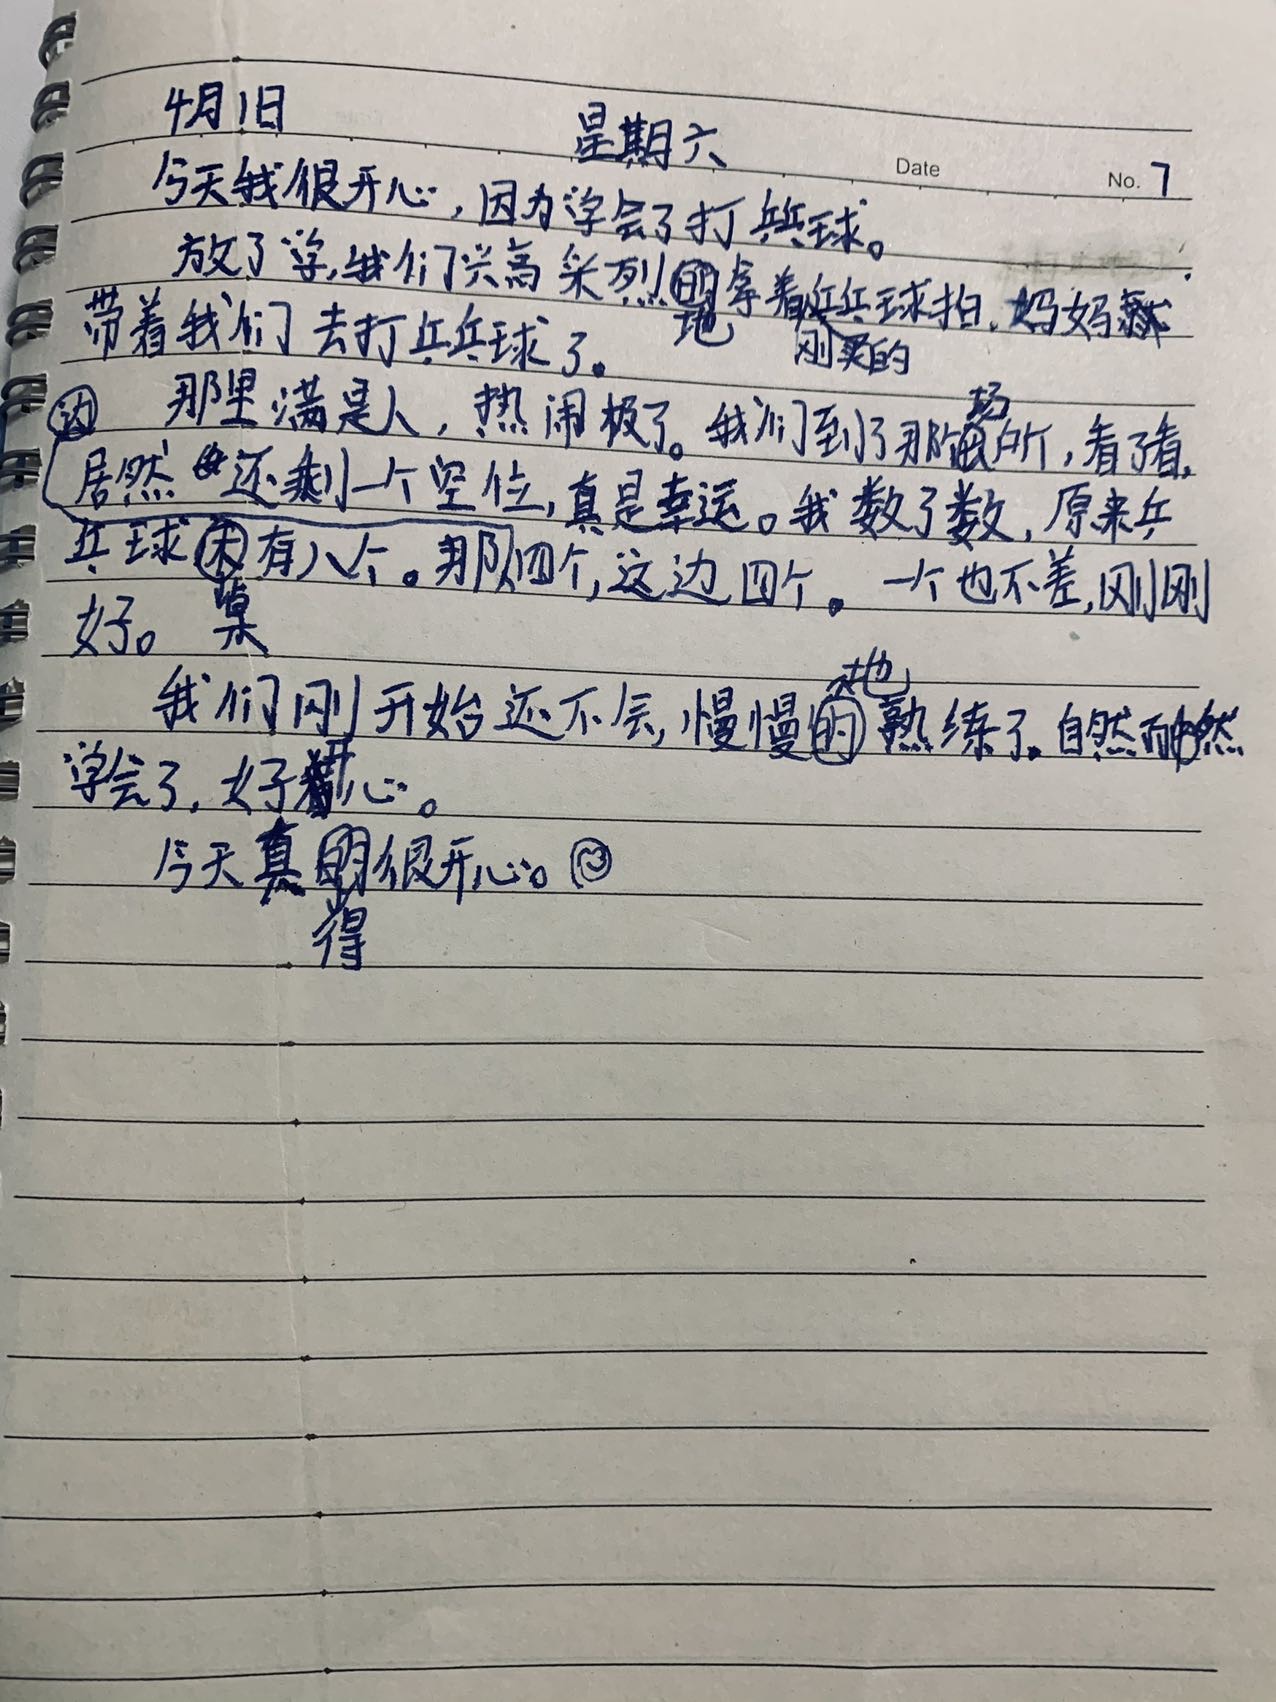 4月1日 星期六
Date No. 7
今天我很开心，因为学会了打乒乓球。
放了学，我们兴高采烈的拿着乒乓球拍，妈妈就
地 刚买的
带着我们去打乒乓球了。
场
边 那里满是人，热闹极了。我们到了那个所，看了看，
居然还剩一个空位，真是幸运。我数了数，原来乒
乓球床有八个。那四个，这边四个。一个也不差，刚刚
好。 桌
地
我们刚开始还不会，慢慢的熟练了。自然而然
学会了，好开心。
今天真的很开心。
得